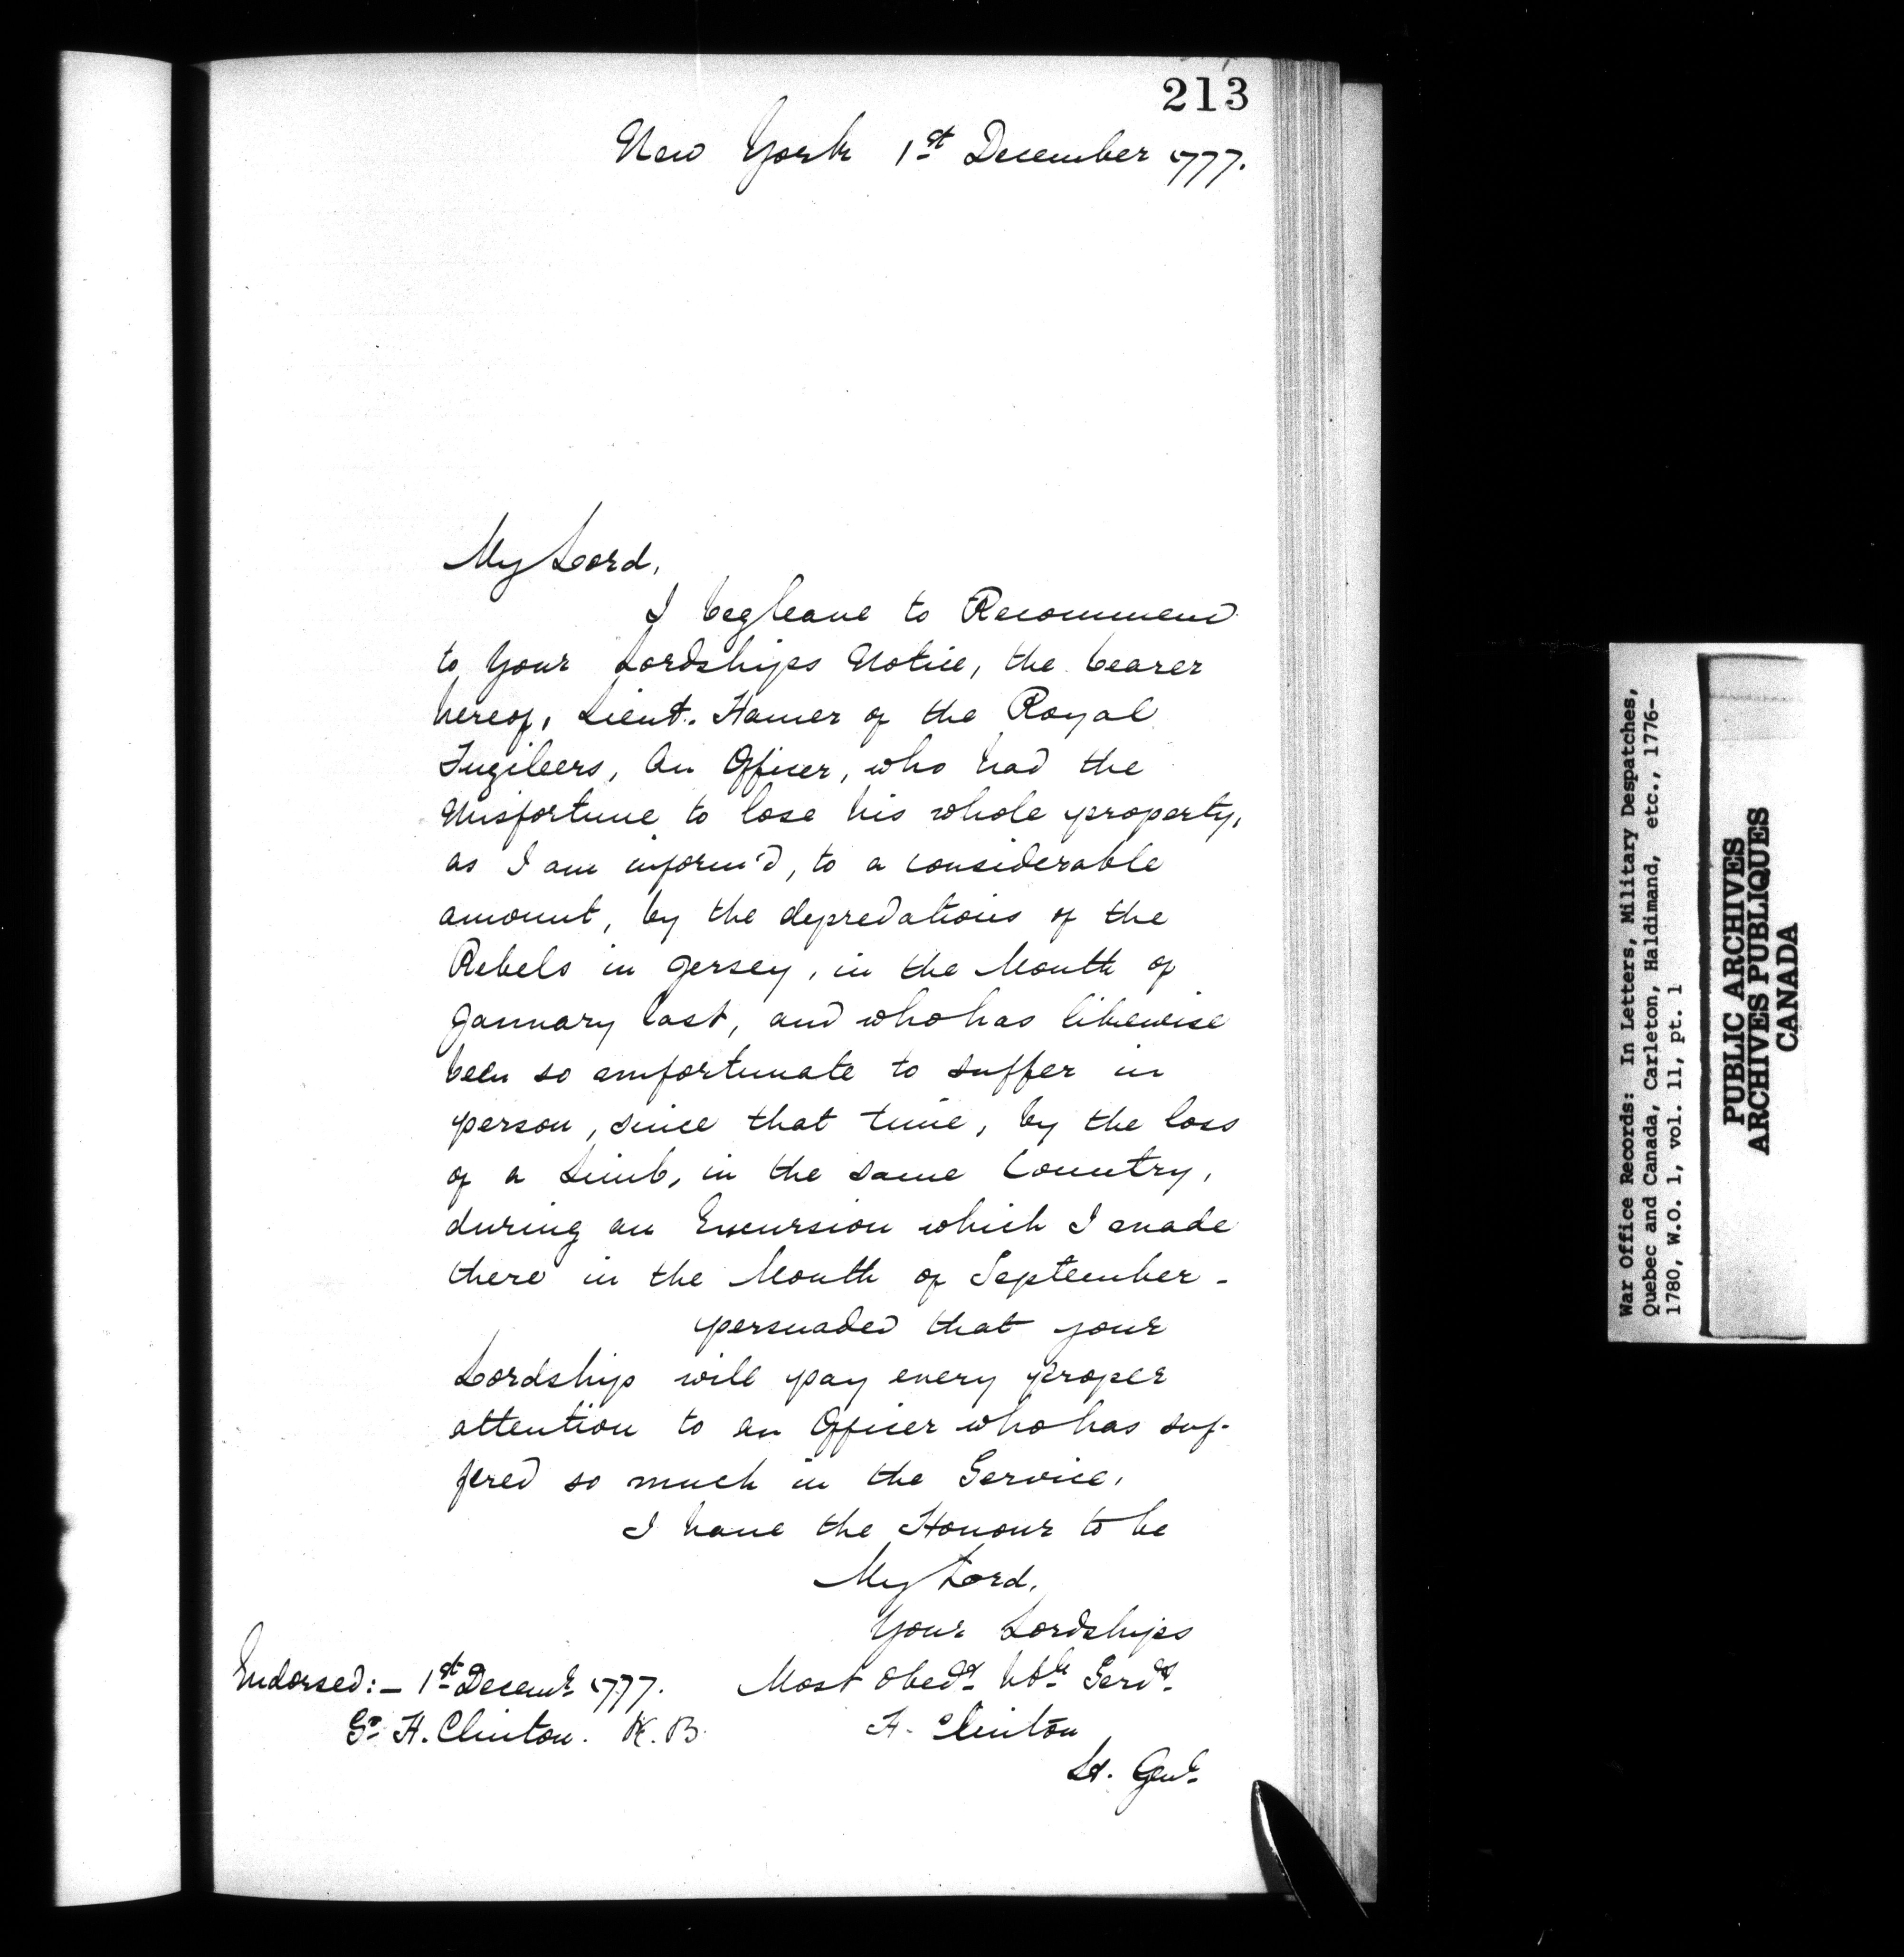 213
New York 1st December 1777.
My Lord,
I beg leave to Recommend
to Your Lordships Notice, the bearer
hereof, Lieut. Hamer of the Royal
Fuzileers, An Officer, who had the
Misfortune to lose his whole property,
as I am inform'd, to a considerable
amount, by the depredations of the
Rebels in Jersey, in the Month of
January last, and who has likewise
been so unfortunate to suffer in
person, since that time, by the loss
of a Limb, in the same Country,
during an Excursion which I made
there in the Month of September -
persuaded that your
Lordship will pay every proper
attention to an Officer who has suf-
fered so much in the Service,
I have the Honour to be
My Lord,
Your Lordships
Most Obedt. hble Servt.
H. Clinton
Lt. Genl.
Endorsed:- 1st Decemr 1777.
Sr. H. Clinton. K.B.
War Office Records: In Letters, Military Despatches,
Quebec and Canada, Carleton, Haldimand, etc., 1776-
1780, W.O. 1, vol. 11, pt. 1
PUBLIC ARCHIVES
ARCHIVES PUBLIQUES
CANADA